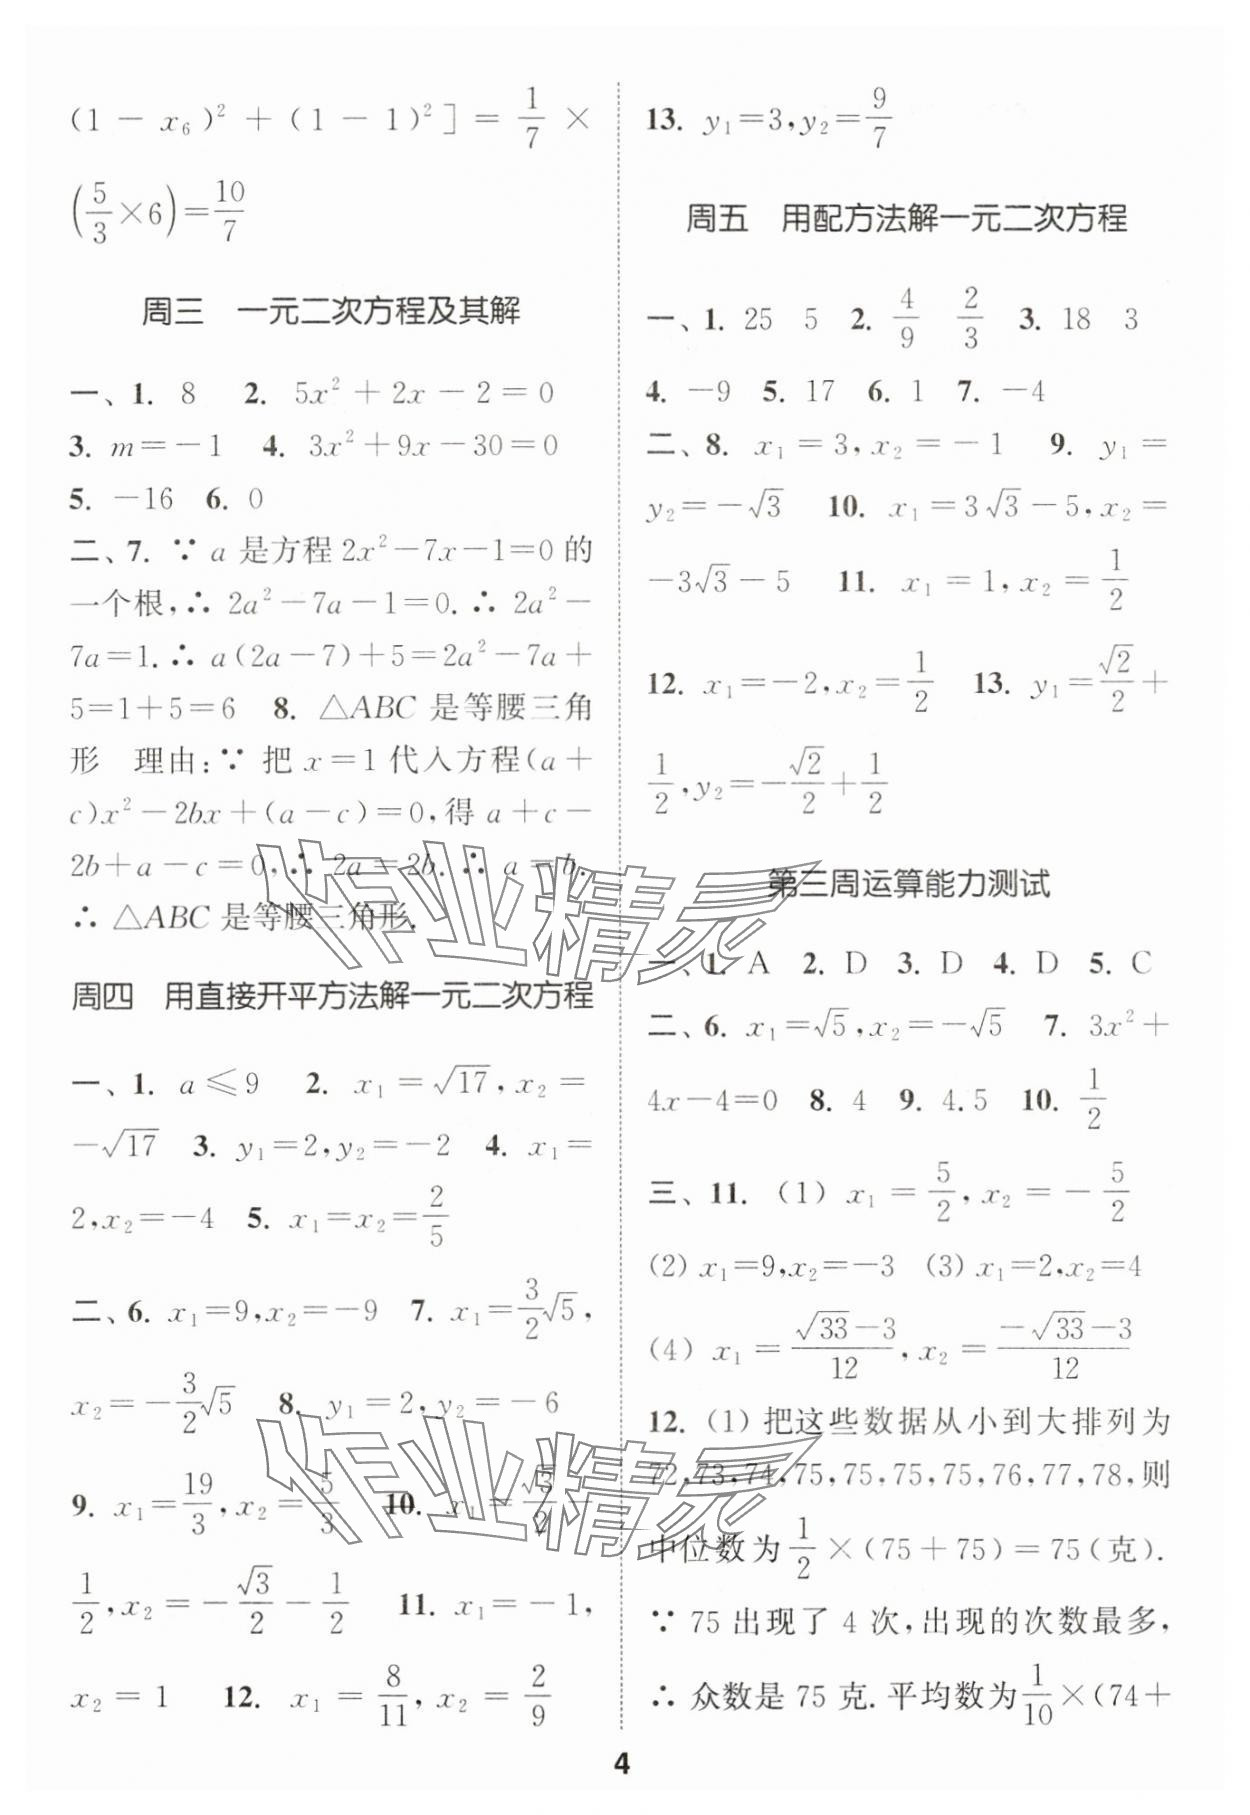 (1 − x₆)² + (1 − 1)²] = 1/7 ×
(5/3×6)=10/7
周三　一元二次方程及其解
一、1. 8　2. 5x²+2x−2=0
3. m=−1　4. 3x²+9x−30=0
5. −16　6. 0
二、7. ∵ a 是方程 2x²−7x−1=0 的
一个根,∴ 2a²−7a−1=0. ∴ 2a²−
7a=1. ∴ a(2a−7)+5=2a²−7a+
5=1+5=6　8. △ABC 是等腰三角
形　理由:∵ 把 x=1 代入方程(a+
c)x²−2bx+(a−c)=0,得 a+c−
2b+a−c=0,∴ 2a=2b. ∴ a=b.
∴ △ABC 是等腰三角形.
周四　用直接开平方法解一元二次方程
一、1. a≤9　2. x₁=√17,x₂=
−√17　3. y₁=2,y₂=−2　4. x₁=
2,x₂=−4　5. x₁=x₂=2/5
二、6. x₁=9,x₂=−9　7. x₁=3/2√5,
x₂=−3/2√5　8. y₁=2,y₂=−6
9. x₁=19/3,x₂=5/3　10. x₁=√3/2−
1/2,x₂=−√3/2−1/2　11. x₁=−1,
x₂=1　12. x₁=8/11,x₂=2/9
13. y₁=3,y₂=9/7
周五　用配方法解一元二次方程
一、1. 25　5　2. 4/9　2/3　3. 18　3
4. −9　5. 17　6. 1　7. −4
二、8. x₁=3,x₂=−1　9. y₁=
y₂=−√3　10. x₁=3√3−5,x₂=
−3√3−5　11. x₁=1,x₂=1/2
12. x₁=−2,x₂=1/2　13. y₁=√2/2+
1/2,y₂=−√2/2+1/2
第三周运算能力测试
一、1. A　2. D　3. D　4. D　5. C
二、6. x₁=√5,x₂=−√5　7. 3x²+
4x−4=0　8. 4　9. 4.5　10. 1/2
三、11. (1) x₁=5/2,x₂=−5/2
(2) x₁=9,x₂=−3　(3) x₁=2,x₂=4
(4) x₁=(√33−3)/12,x₂=(−√33−3)/12
12. (1) 把这些数据从小到大排列为
72,73,74,75,75,75,75,76,77,78,则
中位数为1/2×(75+75)=75(克).
∵ 75 出现了 4 次,出现的次数最多,
∴ 众数是 75 克. 平均数为1/10×(74+
4
作业精灵
作业精灵